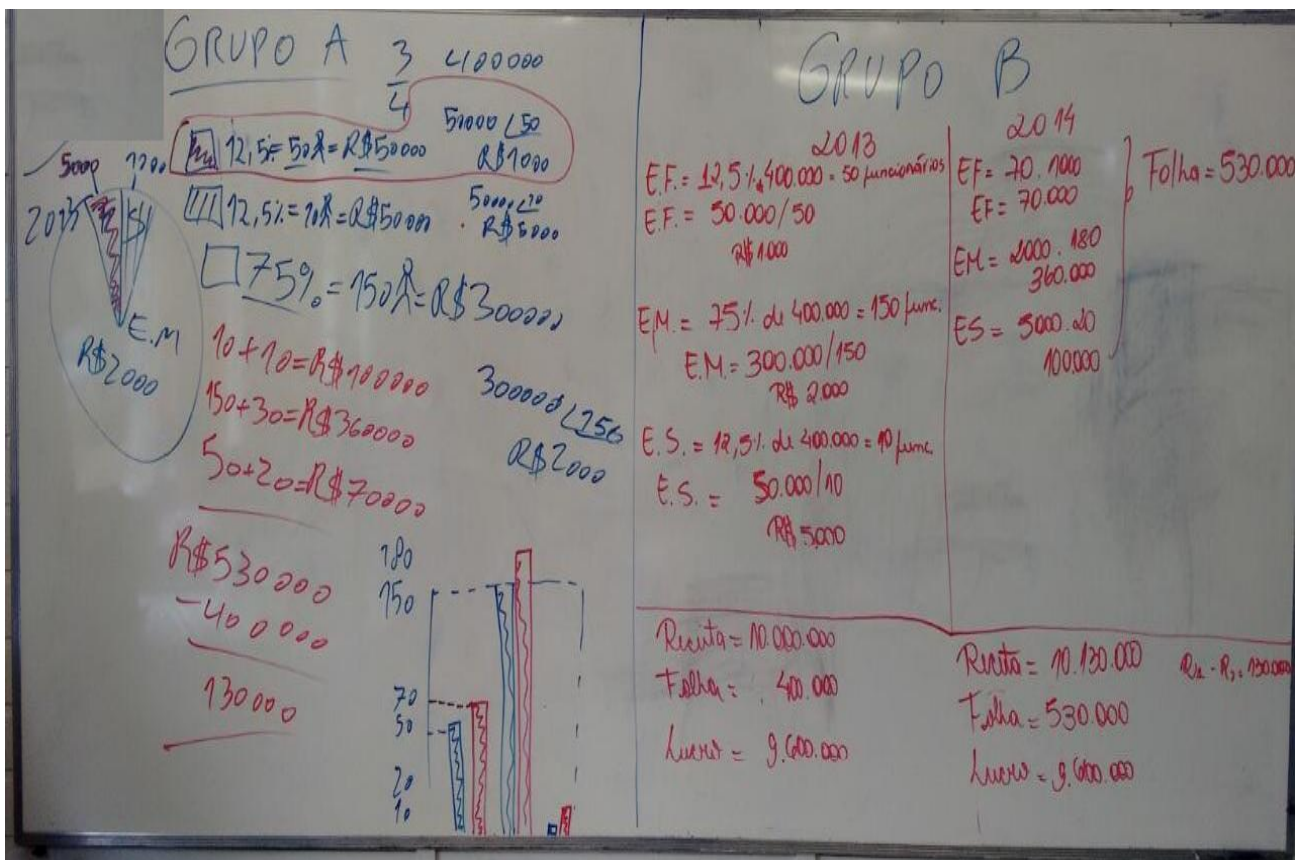 GRUPO A
3
4
400000
12,5% = 50 = R$50000
50000 50
R$1000
5000
2013
12,5% = 10 = R$50000
R$5000
75% = 150 = R$300000
E.M
R$2000
10+10=R$100000
150+30=R$360000
50+20=R$70000
R$2000
R$530000
-400000
130000
180
150
70
50
20
10
GRUPO B
2013
E.F. = 12,5% 400.000 = 50 funcionários
E.F. = 50.000/50
R$ 1.000
E.M. = 75% de 400.000 = 150 func.
E.M. = 300.000/150
R$ 2.000
E.S. = 12,5% de 400.000 = 10 func.
E.S. = 50.000/10
R$ 5.000
2014
EF = 70.1000
EF = 70.000
EM = 2000.180
360.000
ES = 5000.20
100000
Folha = 530.000
Receita = 10.000.000
Folha = 400.000
Lucro = 9.600.000
Receita = 10.130.000
Folha = 530.000
Lucro = 9.600.000
130.000